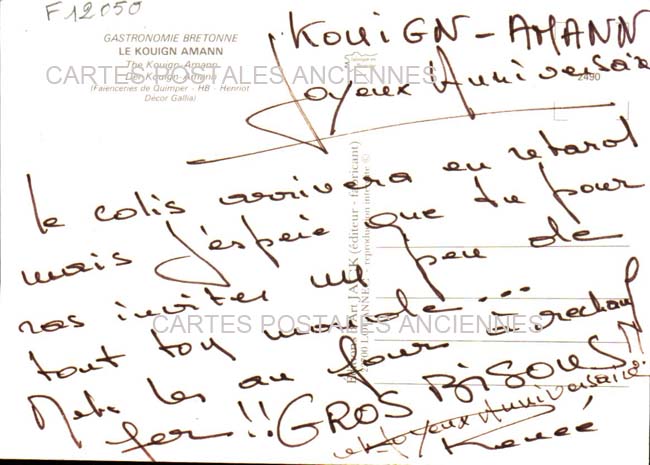 F12050
GASTRONOMIE BRETONNE
LE KOUIGN AMANN
The Kouign-Amann
Der Kouign-Amann
(Faienceries de Quimper - HB - Henriot
Décor Gallia)
CARTES POSTALES ANCIENNES
2490
KOUIGN-AMANN
Joyeux Anniversaire
le colis arrivera en retard
mais j'espère que tu pour
ras inviter un peu de
tout ton monde...
Mets les au four réchauf
fer!! GROS BISOUS!!
et Joyeux Anniversaire
Renée
JACK (éditeur - fabricant)
reproduction interdite ©
CARTES POSTALES ANCIENNES